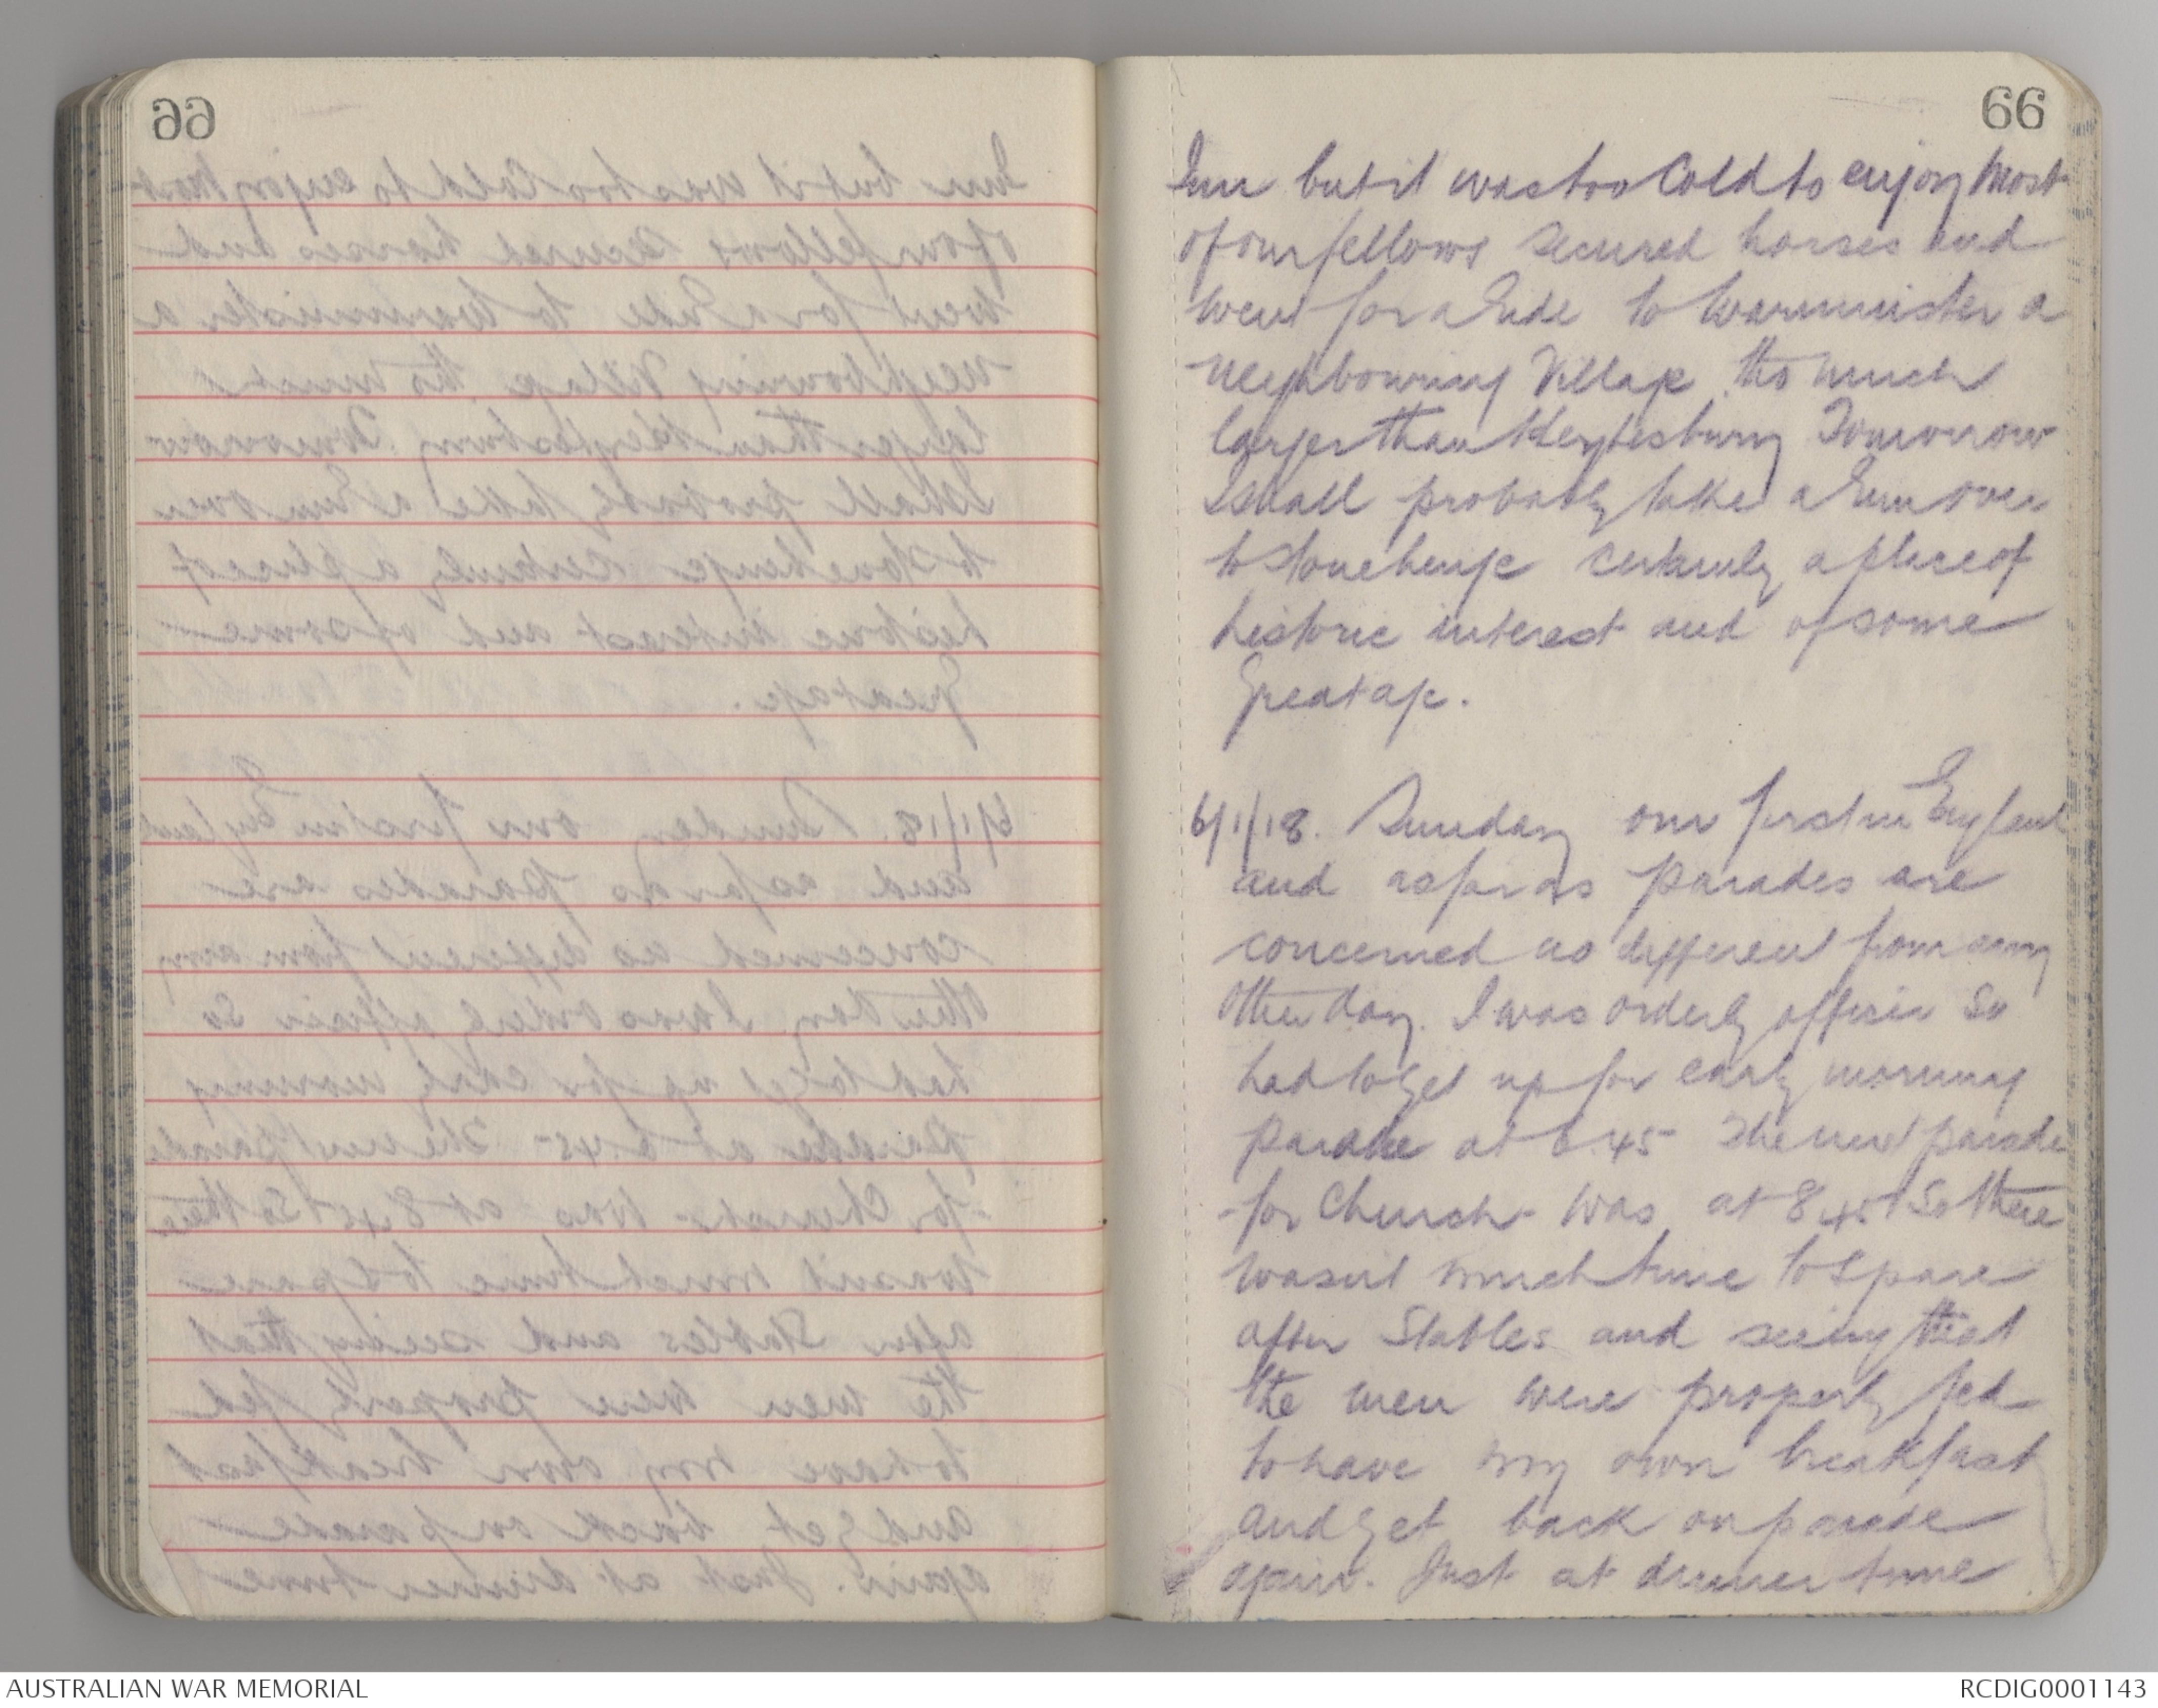 66
Sun but it was too Cold to enjoy Most
of our fellows secured horses and
went for a ride to Warminster a
neighbouring Village tho much
larger than Heytesbury Tomorrow
I shall probably take a run over
to Stonehenge certainly a place of
historic interest and of some
Great age.
6/1/18. Sunday our first in England
and as far as parades are
concerned as different from any
other day. I was orderly officer so
had to get up for early morning
parade at 6.45 The next parade
-for Church- was at 8.45 So there
wasnt much time to spare
after Stables and seeing that
the men were properly fed
to have my own breakfast
and get back on parade
again. Just at dinner time
AUSTRALIAN WAR MEMORIAL
RCDIG0001143